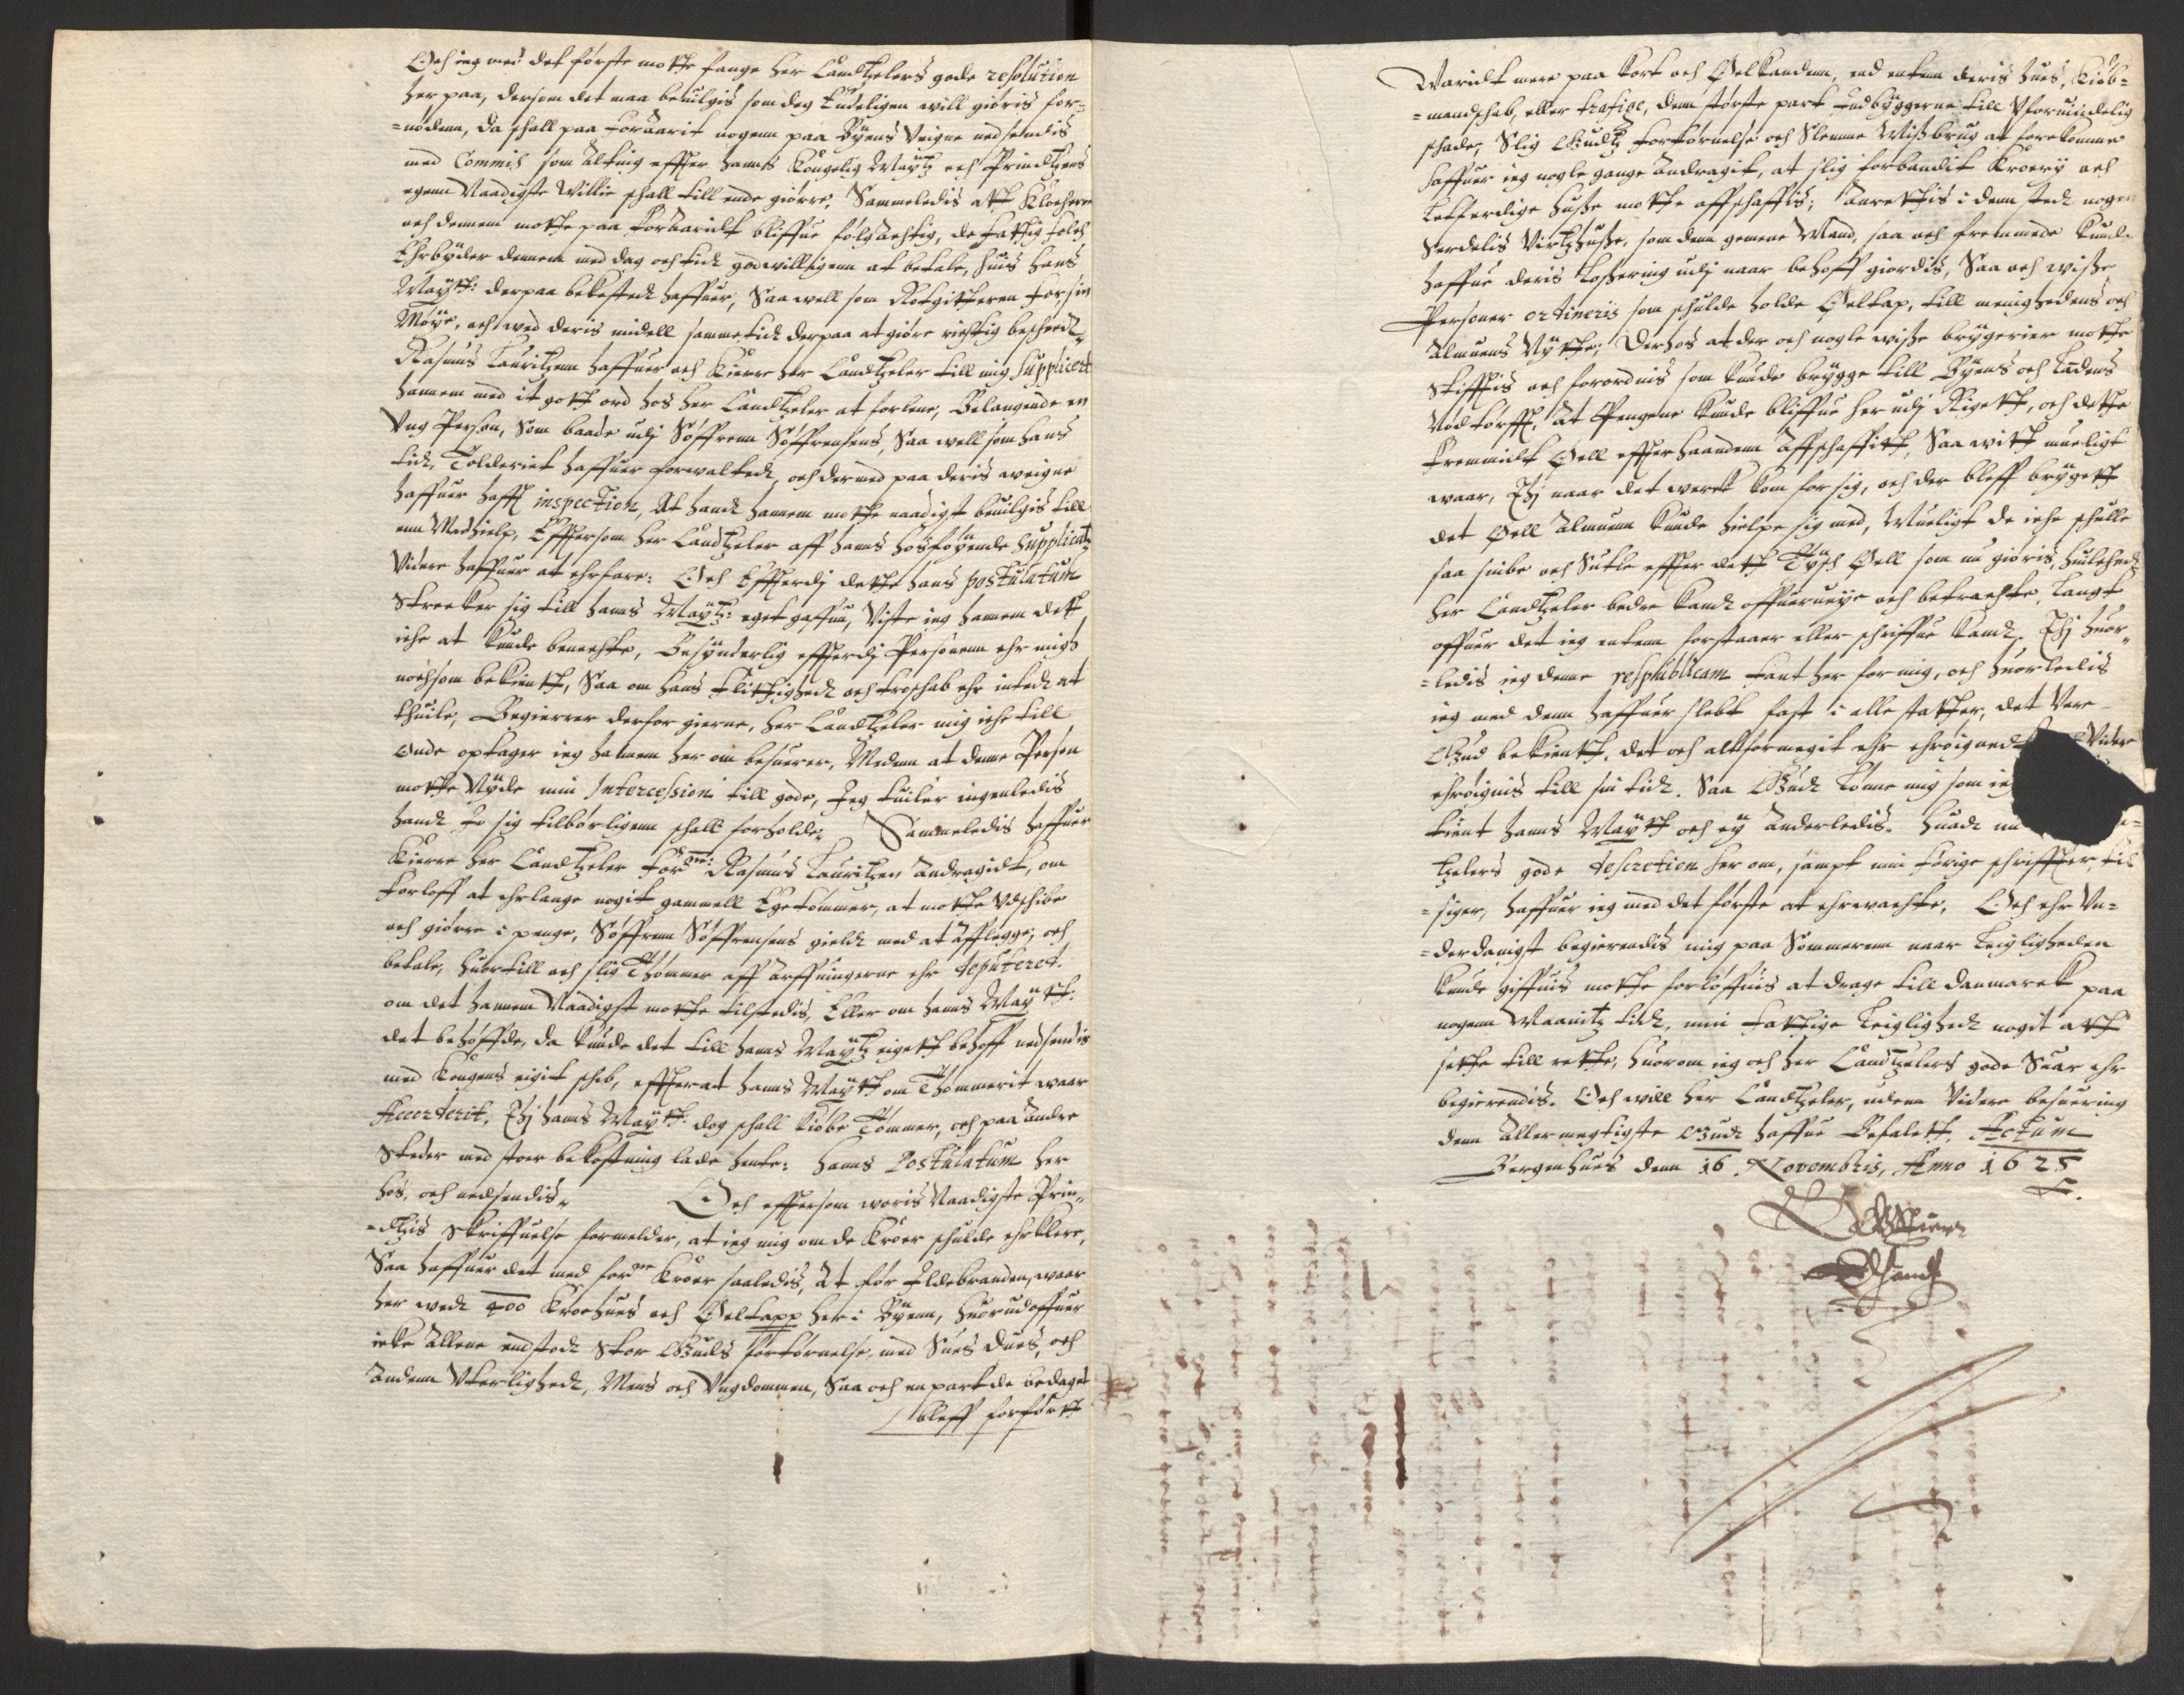 Och ieg med det første motte fange Her Candtzelers gode resolution
her paa, dersom det maa beuilgis som dog Endeligen will giøris for-
=nøden, da schall paa Foraarit nogenn paa Byens Veigne nedsendis
med Commis som Alting effter hanns Kongelig Maÿtz och Prindtzens
egenn Naadigste Willie schall till ende giørre. Sammeledis att Klocherne
och dennem motte paa Foraaridt bliffue følgachtig, de Fattig folch
Ehrbyder dennem med dag och tidt godwilligenn at betale, huis Hans
Maytt: derpaa bekosted haffuer, Saa well som Rotgitteren For sin
Møye, och wed deris middell sammetid derpaa at giøre richtig bescheed.
Rasmus Lauritzenn haffuer och Kierre Her Candtzeler till mig supplicert
hannem med it gott ord hos Her Candtzeler at forlene, Belangende en
Vng Person, Som baade udj Søffrenn Søffrensens, Saa well som hans
tid, Tolderiet haffuer forwalted, och dermed paa deris weigne
haffuer hafft inspection, At hand hannem motte naadigst beuilgis till
enn Medhielp, Efftersom Her Candtzeler aff hanns hosføyende Supplicatz
Videre haffuer at ehrfare: Och Effterdj dette hans postulatum
Strecker sig till hanns Maytz: eget gaffn, Viste ieg hannem dett
iche at kunde benechte, Besynderlig effterdj Personenn ehr migh
nochsom bekientt, Saa om hans Flittighed och troschab ehr inted at
thuile, Begierrer derfor gierne, Her Candtzeler mig iche till
Onde optager ieg hannem her om besuerer, Medenn at denne Person
motte Nyde min Intercession till gode, Jeg tuiler ingenledis
hand Jo sig tilbørligenn schall forholde. Sammeledis haffuer
Kierre Her Candtzeler for<sup>ne</sup>: Rasmus Lauritzen Andragidt, om
Forloff at ehrlange nogit gammell Egetømmer, at motte Vdschibe
och giørre i penge, Søffrenn Søffrensens gield med at Afflegge, och
betale, huortill och slig Thømmer aff Arffuingerne ehr deputeret.
om det hannem Naadigst motte tilstedis, Eller om hanns Maÿtt:
det behøffde, da kunde det till hanns Maytz eigett behoff nedsendis
med Kongens eigit schib, effterat hanns Maytt om Thømmerit waar
Accorderit, Thj hanns Maÿtt: dog schall kiøbe Tømmer, och paa Andre
Steder med stoer bekostning lade hente: hanns Postulatum her
hos, och nedsendis. Och effersom woris Naadigste Prin-
=dtzis Skriffuelse formelder, at ieg mig om de Kroer schulde ehrklere,
Saa haffuer det med for<sup>ne</sup> Kroer saaledis, At for Ildebranden, waar
her wed 400 Kroehuus och Øeltapp her i Byenn, huorudoffuer
icke Allene endstod stor Guds Fortørnelse, med Suus duus, och
Andenn Vterlighed, Mens och Vngdommen, Saa och en part de bedaget
bleff forførtt
Waridt mere paa Kort och Øelkanden, end entenn deris huus, Kiøb-
=mandschab, eller trafique, denn største part Indbyggerne till Vforuindelig
schade, Slig Gudtz Fortørnelse och Slemme Missbrug at forekomme
haffuer ieg nogle gange Andragit, at slig forbandit Kroerÿ och
Letferdige husse motte affschaffis, Anrettis i denn sted nogen
Serdelis Virtzhusse, som denn gemene Mand, saa och fremmede kunde
haffue deris Lossering udj naar behoff giordis, Saa och wisse
Personer ordineris som schulde holde Øeltap, till menighedens och
Almuens Nytte, Derhos at der och nogle wisse bryggerier motte
Stifftis och forordnis som kunde brygge till Byens och Landens
Nødtørfft, At Pengene kunde bliffue her udj Rigett, och dette
Fremmidt Øell effterhaandenn Affschaffitt, Saa witt mueligt
waar, Thj naar det werck kom for sig, och der bleff bryggett
det Øell Almuenn kunde hielpe sig med, Mueligt de iche schulle
saa suibe och Sucke effter dett Tysch Øell som nu giøris, huilched
Her Candtzeler bedre kand offuerueye och betrachte, Langt
offuer det ieg entenn forstaaer eller schriffue kand. Thj huor-
=ledis ieg denne respublicam Fant her for mig, och huorledis
ieg med denn haffuer slebt fast i alle statter, det Vere
Gud bekientt. det och altformegit ehr ehrøigned Videre
ehrøignis till sin tid. Saa Gud Lønne mig som ieg
tient hanns Maytt och ey Anderledis. Huad nu
tzelers gode descretion her om, sampt min forige schriffter, til
=siger, haffuer ieg med det første at ehrwachte. Och ehr Vn-
=derdanigst begierendis mig paa Sommerenn naar Leigligheden
kunde giffuis motte forløffuis at drage till Danmarck paa
nogenn Maanitz tid, min Fattige Leiglighed nogit att
sette till rette, huorom ieg och Her Candtzelers gode Suar ehr
begierendis. Och will Her Candtzeler, udenn Videre besuering
denn Allermegtigste Gud haffue Befalett. Actum
Bergenhuus denn 16. Novembris, Anno 1625